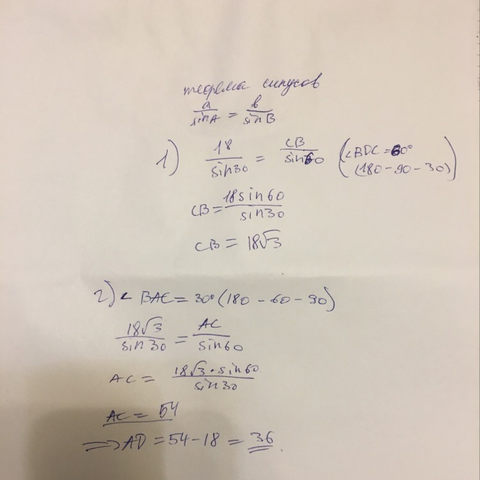 теорема синусов
a/sinA = b/sinB
1) 18/sin30 = CB/sin60 (∠BDC = 60°
(180-90-30))
CB = 18sin60/sin30
CB = 18√3
2) ∠ BAC = 30° (180 - 60 - 90)
18√3/sin30 = AC/sin60
AC = 18√3 • sin60/sin30
AC = 54
=> AD = 54 - 18 = 36.